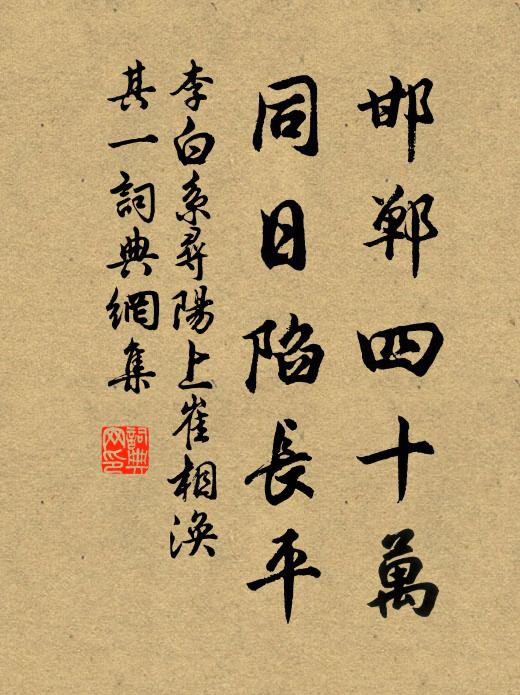 邯鄲四十萬
同日陷長平
李白系尋陽上崔相渙
其一詞典網集
詞典
网印